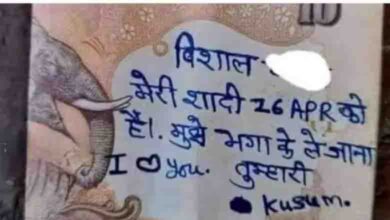 10
विशाल
मेरी शादी 26 APR को
है। मुझे भगा के ले जाना
I ♡ you. तुम्हारी
Kusum.